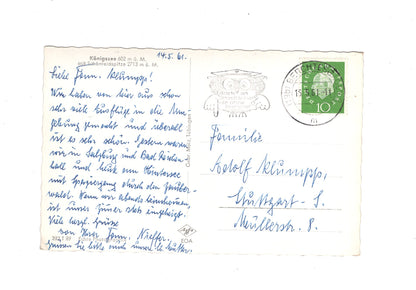 14.5.61.
Königssee 602 m ü. M.
mit Schönfeldspitze 2713 m ü. M.
Liebe Fam. Klumpp!
Wir haben von hier aus schon
sehr viele Ausflüge in die Um-
gebung gemacht und überall
ist es sehr schön. Gestern waren
wir in Salzburg und Bad Reichen-
hall und heute am Hintersee
mit Spaziergang durch den Zauber-
wald. Wenn wir abends heimkommen,
ist unser Zimmer schon eingeheizt.
Viele herzl. Grüsse
von Ihrer Fam. Nieffer.
Grüssen Sie bitte auch unsere lb. Mutter
Familie
Adolf Klumpp,
Stuttgart-S.
Müllerstr. 8.
DEUTSCHE BUNDESPOST
10
EDA